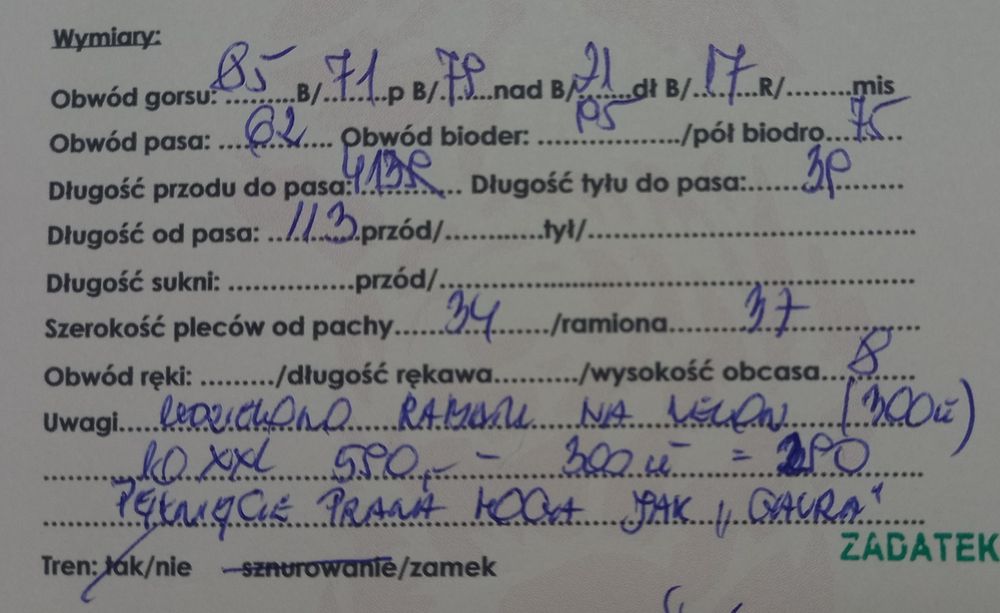 Wymiary:
Obwód gorsu: 85 B/ 71 p B/ 79 nad B/ 21 dł B/ 17 R/.........mis
Obwód pasa: 62 Obwód bioder: 95 /pół biodro 75
Długość przodu do pasa: Długość tyłu do pasa: 39
Długość od pasa: 113 przód/............tył/
Długość sukni: ................przód/
Szerokość pleców od pachy 34 /ramiona 37
Obwód ręki: ........./długość rękawa........../wysokość obcasa 8
Uwagi UDZIELONO RABATU NA WELON (300zł)
XXL 590,- - 300 zł = 290
PĘKNIĘCIE PRAWA NOGA JAK "GAURA"
ZADATEK
Tren: tak/nie sznurowanie/zamek